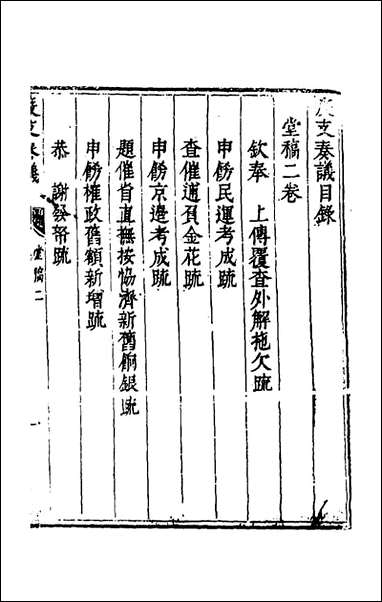 度支奏議目錄
堂稿二卷
欽奉　上傳覆查外解拖欠疏
申飭民運考成疏
查催逋負金花疏
申飭京邊考成疏
題催省直撫按協濟新舊餉銀疏
申飭榷政舊額新增疏
恭　謝發帑疏
度支奏議　堂稿二